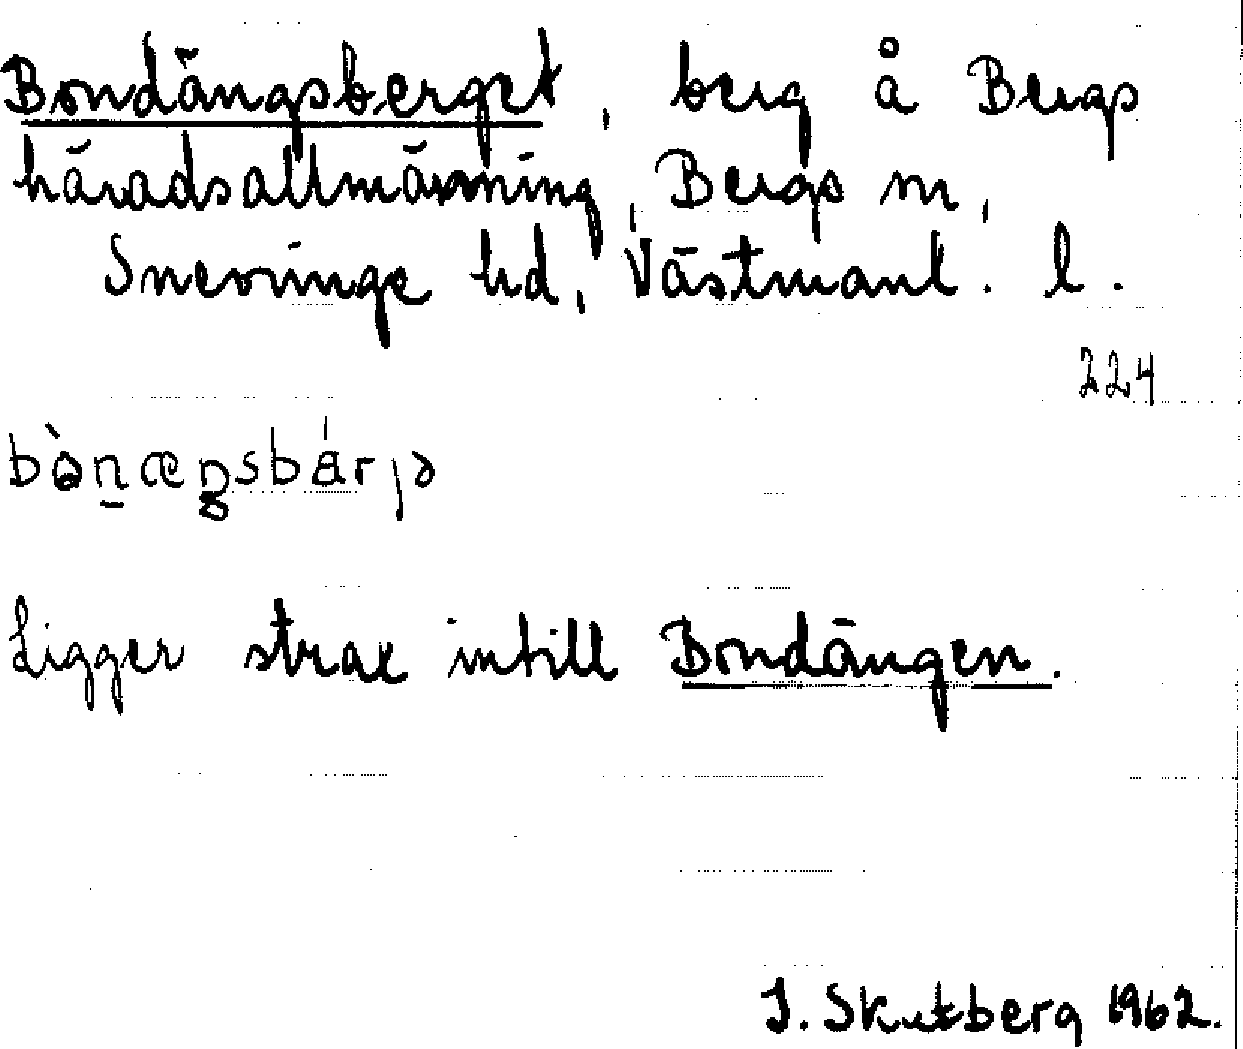 Bondängsberget, berg å Bergs
häradsallmänning, Bergs sn,
Snevringe hd, Västmanl. l.
224
bònæŋsbárjə
Ligger strax intill Bondängen.
J. Skutberg 1962.